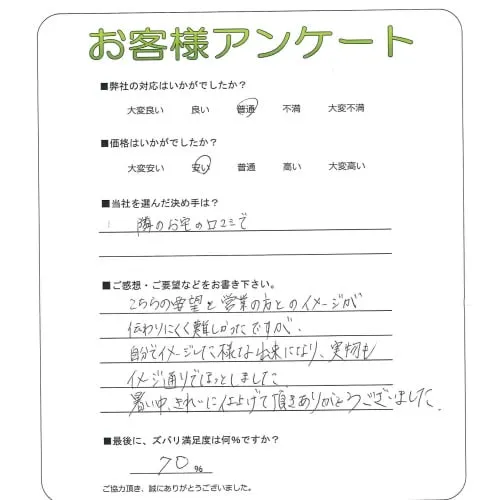 お客様アンケート
■弊社の対応はいかがでしたか？
大変良い 良い 普通 不満 大変不満
■価格はいかがでしたか？
大変安い 安い 普通 高い 大変高い
■当社を選んだ決め手は？
隣のお宅の口コミで
■ご感想・ご要望などをお書き下さい。
こちらの要望と営業の方とのイメージが
伝わりにくく難しかったですが、
自分でイメージした様な出来になり、実物も
イメージ通りでほっとしました
暑い中、きれいに仕上げて頂きありがとうございました。
■最後に、ズバリ満足度は何%ですか？
70 %
ご協力頂き、誠にありがとうございました。